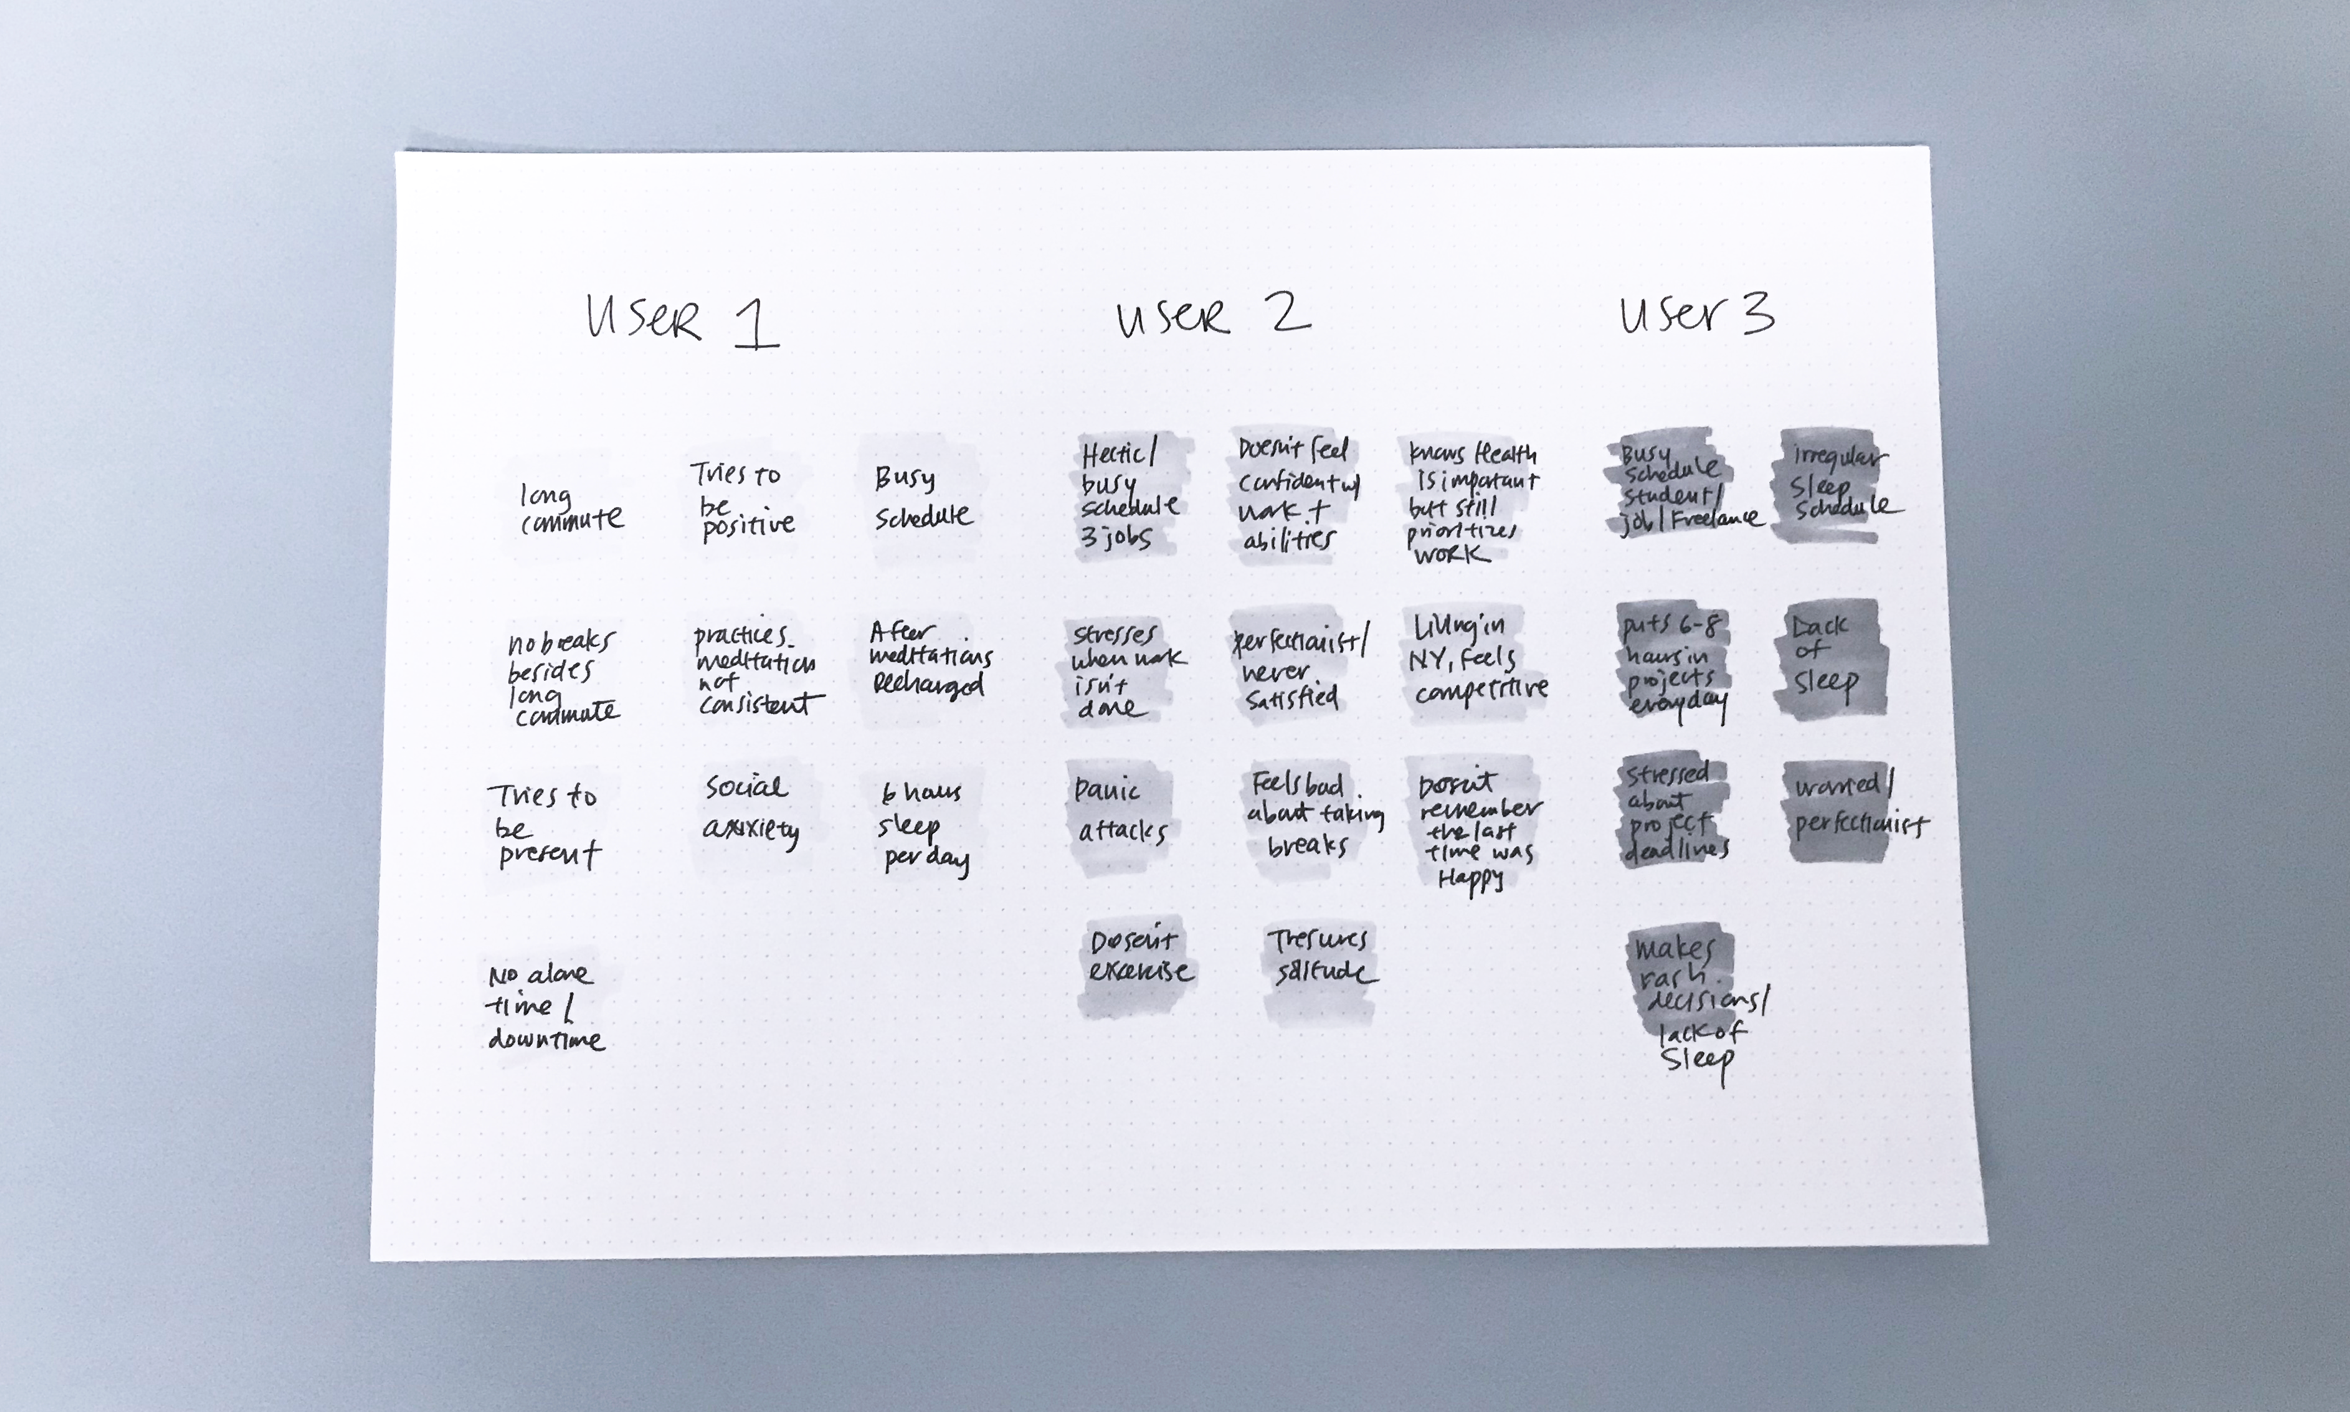 USER 1
long
commute
Tries to
be
positive
Busy
Schedule
no breaks
besides
long
commute
practices
meditation
not
consistent
After
meditations
Recharged
Tries to
be
present
Social
anxiety
6 hours
sleep
per day
No alone
time /
downtime
USER 2
Hectic/
busy
schedule
3 jobs
Doesn't feel
confident w/
work +
abilities
knows Health
is important
but still
prioritizes
WORK
Stresses
when work
isn't
done
perfectionist/
never
satisfied
Living in
NY, feels
competitive
panic
attacks
Feels bad
about taking
breaks
Dosent
remember
the last
time was
Happy
Dosent
excercise
Tresures
solitude
User 3
Busy
Schedule
Student/
job/Freelance
irregular
Sleep
Schedule
puts 6-8
hours in
projects
everyday
Lack
of
sleep
Stressed
about
project
deadlines
worried/
perfectionist
makes
rash
decisions/
lack of
Sleep